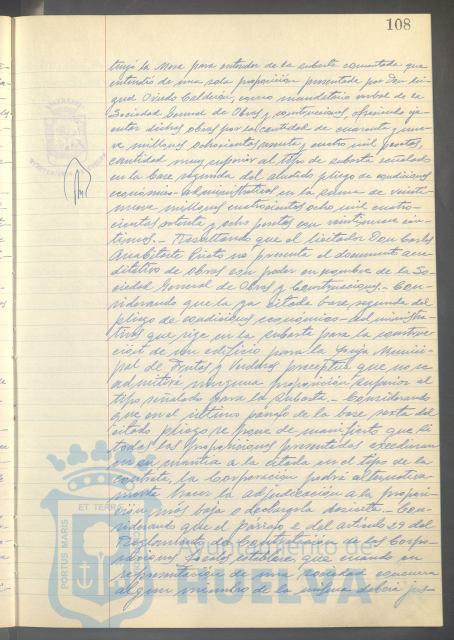 108
la Mesa para entender de la subasta comentada que
entendió de una sola proposición presentada por Don
Oviedo Calderón, como mandatario verbal de la
Sociedad General de Obras y Construcciones, ofreciendo
dichas obras por la cantidad de cuarenta y nue-
ve millones ochocientas y cuatro mil pesetas,
cantidad muy superior al tipo de subasta señalado
en la base segunda del aludido pliego de condiciones
económico-administrativas en la suma de veinti-
nueve millones cuatrocientas ocho mil cuatro-
cientas setenta y ocho pesetas con veintinueve cén-
timos.- Resultando que el licitador Don Carlos
Prieto no presenta el documento acre-
ditativo de obrar con poder en nombre de la So-
ciedad General de Obras y Construcciones.- Con-
siderando que la ya citada base segunda del
pliego de condiciones económico-administra-
tivas que rige en la subasta para la construc-
ción de un edificio para la Lonja Munici-
pal de Frutas y Verduras preceptúa que no se
admitirá ninguna proposición superior al
tipo señalado para la subasta.- Considerando
que en el último párrafo de la base sexta del
citado pliego se pone de manifiesto que si
todas las proposiciones presentadas excedieran
en cuantía a la citada en el tipo de la
contrata, la Corporación podrá alternativa-
mente hacer la adjudicación a la proposi-
ción más baja o declararla desierta.- Con-
siderando que el párrafo 2 del artículo 29 del
Reglamento de Contratación de las Corpo-
raciones Locales establece que cuando en
representación de una sociedad concurra
algún miembro de la misma deberá jus-
PORTUS MARIS
ET TERRAE
Ayuntamiento de
HUELVA